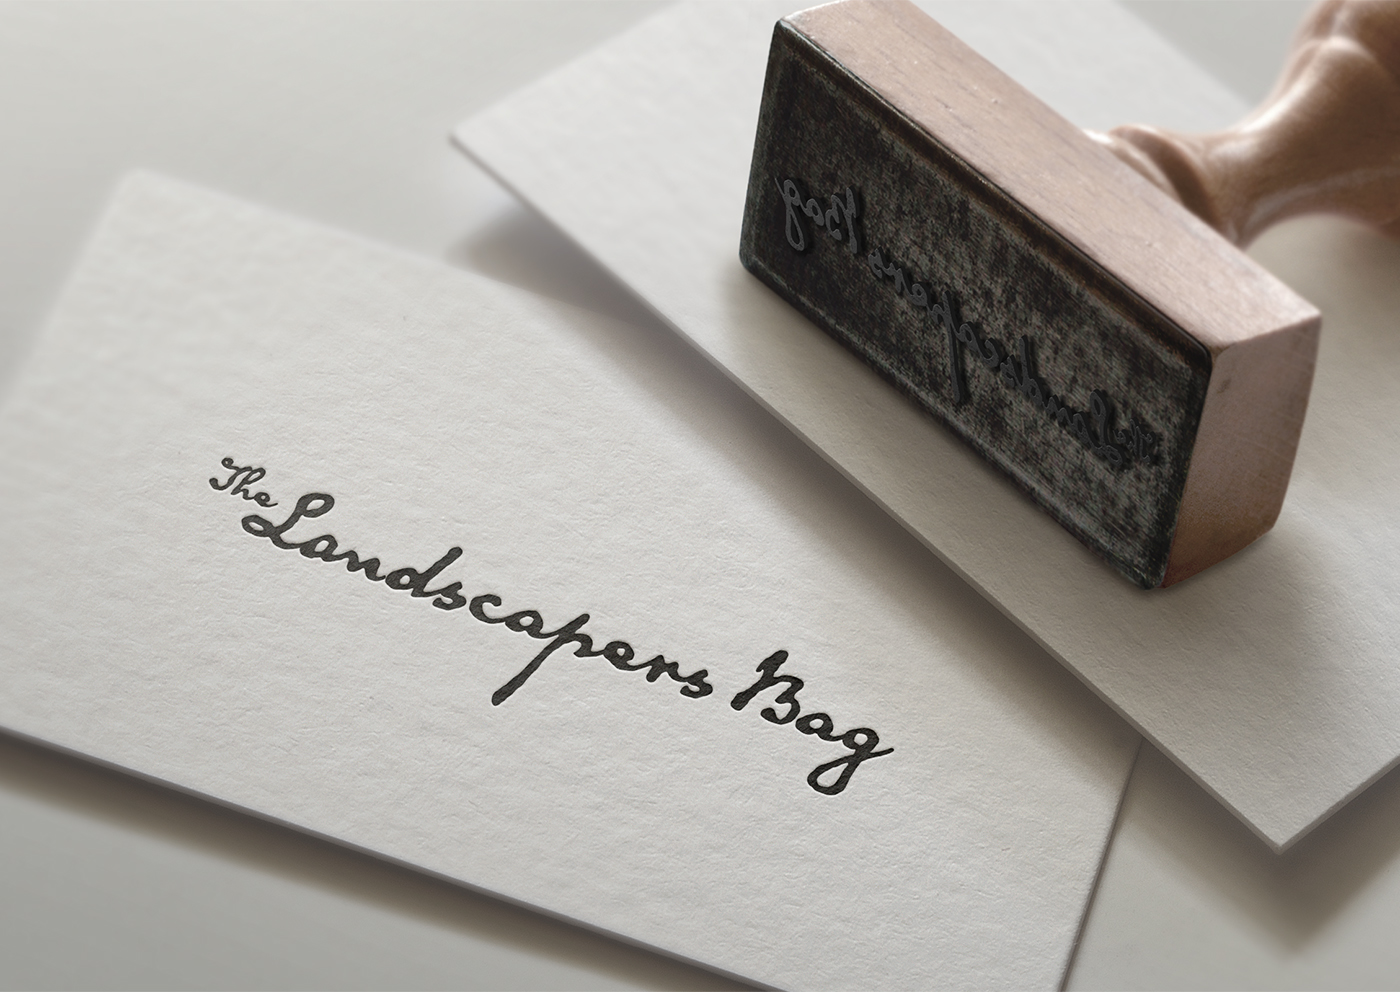 The Landscapers Bag
The Landscapers Bag